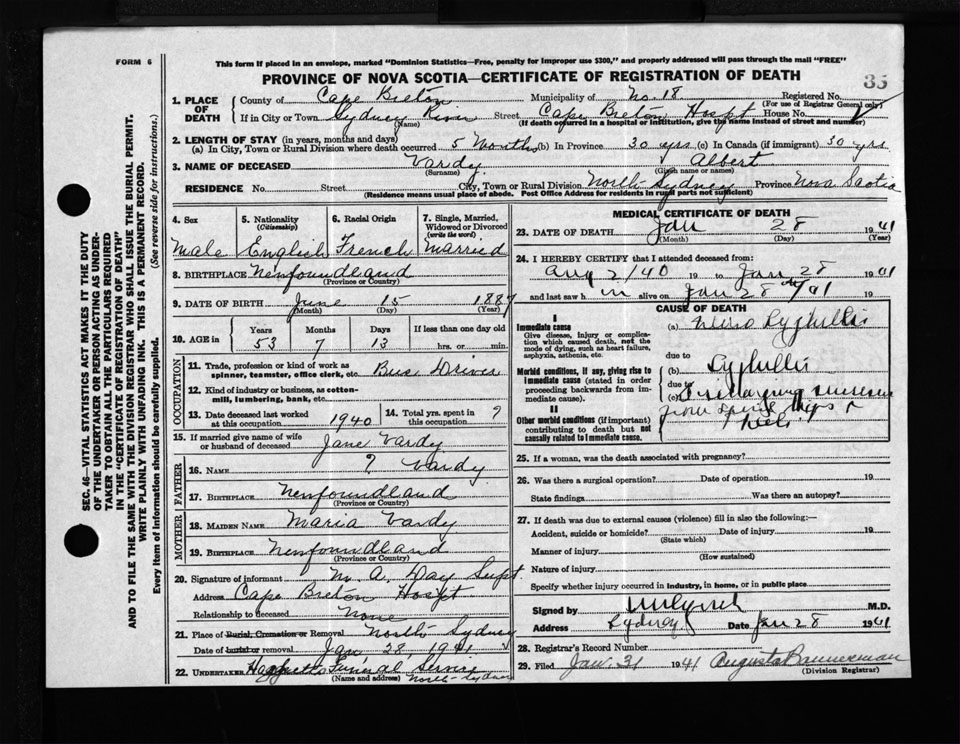 FORM 6
This form if placed in an envelope, marked "Dominion Statistics—Free, penalty for improper use $300," and properly addressed will pass through the mail "FREE"
PROVINCE OF NOVA SCOTIA—CERTIFICATE OF REGISTRATION OF DEATH
35
1. PLACE OF DEATH
County of Cape Breton Municipality of No. 18 Registered No.
(For use of Registrar General only)
If in City or Town Sydney River Street Cape Breton Hospt House No.
(Name) (If death occurred in a hospital or institution, give the name instead of street and number)
2. LENGTH OF STAY (in years, months and days)
(a) In City, Town or Rural Division where death occurred 5 Months (b) In Province 30 yrs (c) In Canada (if immigrant) 30 yrs
3. NAME OF DECEASED Vardy Albert
(Surname) (Given name or names)
RESIDENCE No. Street City, Town or Rural Division North Sydney Province Nova Scotia
(Residence means usual place of abode. Post Office Address for residents in rural parts not sufficient)
4. Sex 5. Nationality (Citizenship) 6. Racial Origin 7. Single, Married, Widowed or Divorced (write the word)
Male English French Married
8. BIRTHPLACE Newfoundland
(Province or Country)
9. DATE OF BIRTH June 15 1887
(Month) (Day) (Year)
10. AGE in Years Months Days If less than one day old
53 7 13 hrs. or min.
OCCUPATION
11. Trade, profession or kind of work as spinner, teamster, office clerk, etc. Bus Driver
12. Kind of industry or business, as cotton-mill, lumbering, bank, etc.
13. Date deceased last worked at this occupation 1940 14. Total yrs. spent in this occupation ?
15. If married give name of wife or husband of deceased Jane Vardy
FATHER
16. NAME ? Vardy
17. BIRTHPLACE Newfoundland
(Province or Country)
MOTHER
18. MAIDEN NAME Maria Vardy
19. BIRTHPLACE Newfoundland
(Province or Country)
20. Signature of informant M. A. Day Supt.
Address Cape Breton Hospt
Relationship to deceased None
21. Place of Burial, Cremation or Removal North Sydney
Date of burial or Removal Jan. 28, 1941
22. UNDERTAKER Funeral Service
(Name and address) North Sydney
MEDICAL CERTIFICATE OF DEATH
23. DATE OF DEATH Jan 28 1941
(Month) (Day) (Year)
24. I HEREBY CERTIFY that I attended deceased from:
Aug 2/40 19 to Jan 28 1941
and last saw h im alive on Jan 28 19
CAUSE OF DEATH
I
Immediate cause
Give disease, injury or complication which caused death, not the mode of dying, such as heart failure, asphyxia, asthenia, etc.
(a)
due to
Morbid conditions, if any, giving rise to immediate cause (stated in order proceeding backwards from immediate cause).
(b)
due to
(c)
II
Other morbid conditions (if important) contributing to death but not causally related to immediate cause.
25. If a woman, was the death associated with pregnancy?
26. Was there a surgical operation? Date of operation 19
State findings Was there an autopsy?
27. If death was due to external causes (violence) fill in also the following:—
Accident, suicide or homicide? Date of injury 19
(State which)
Manner of injury
(How sustained)
Nature of injury
Specify whether injury occurred in industry, in home, or in public place
Signed by M.D.
Address Sydney Date Jan 28 1941
28. Registrar's Record Number
29. Filed Jan 31 1941 Augusta Bannerman
(Division Registrar)
SEC. 46—VITAL STATISTICS ACT MAKES IT THE DUTY
OF THE UNDERTAKER OR PERSON ACTING AS UNDERTAKER TO OBTAIN ALL THE PARTICULARS REQUIRED
IN THE "CERTIFICATE OF REGISTRATION OF DEATH"
AND TO FILE THE SAME WITH THE DIVISION REGISTRAR WHO SHALL ISSUE THE BURIAL PERMIT.
WRITE PLAINLY WITH UNFADING INK. THIS IS A PERMANENT RECORD.
Every item of information should be carefully supplied. (See reverse side for instructions.)